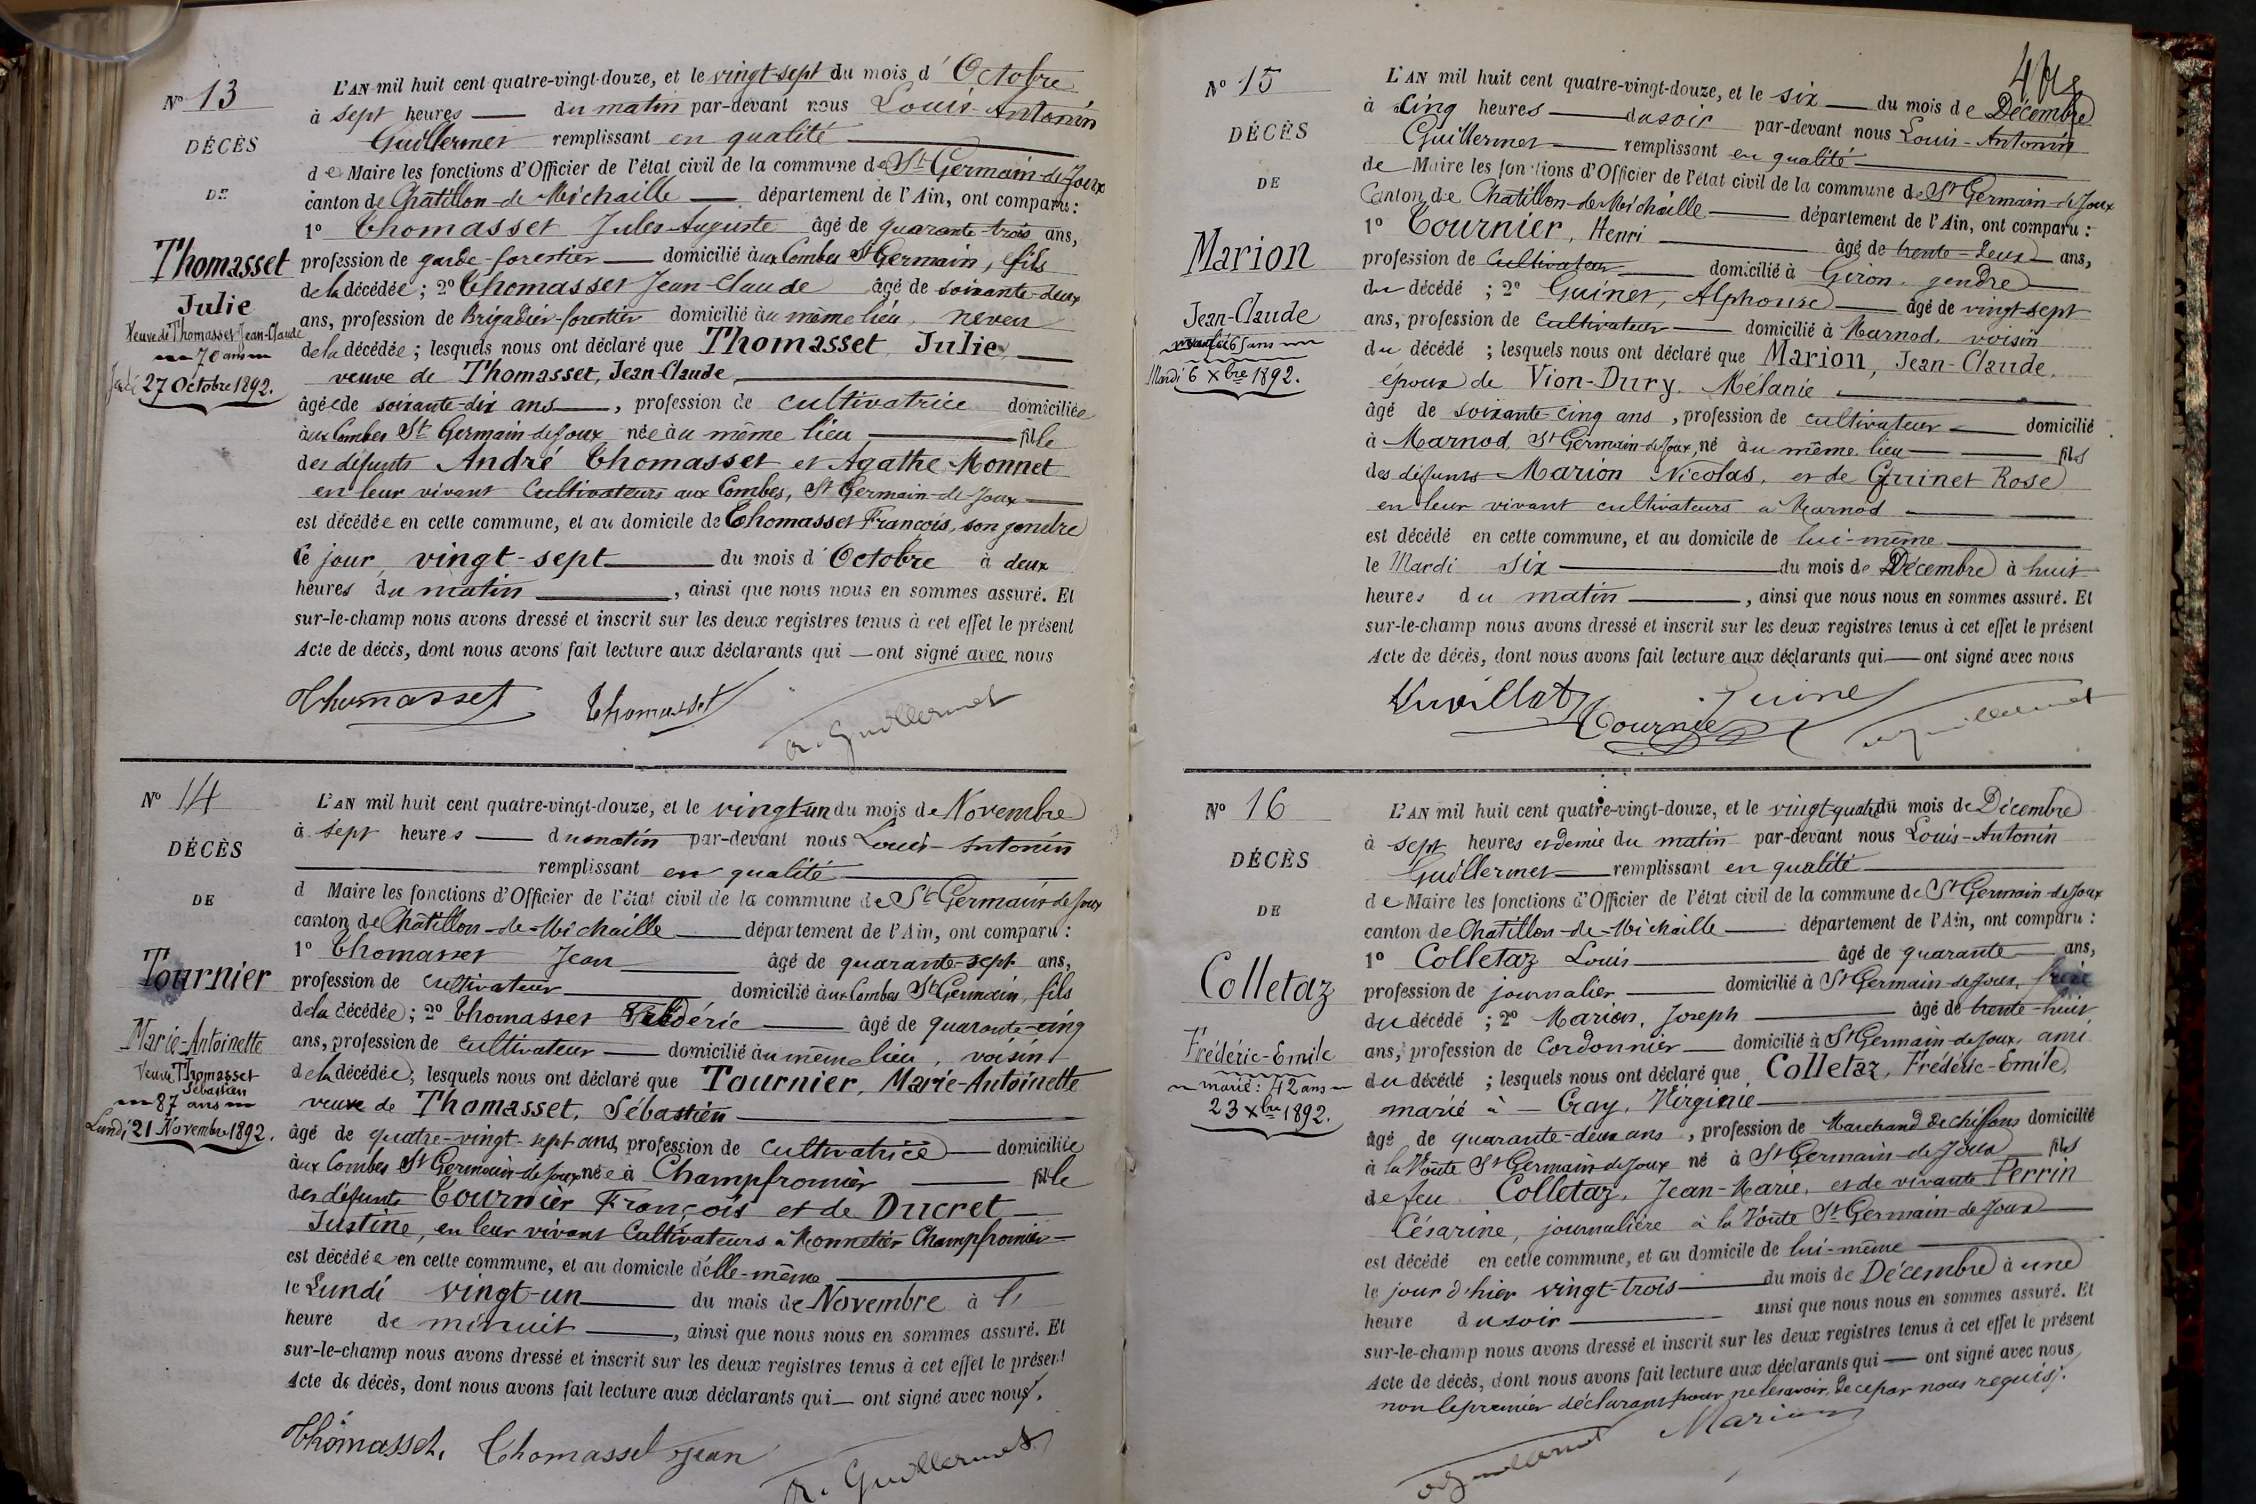 Nº 13
DÉCÈS
DE
Thomasset
Julie
Veuve de Thomasset Jean-Claude
70 ans
Jeudi 27 Octobre 1892.
L'AN mil huit cent quatre-vingt-douze, et le vingt-sept du mois d'Octobre
à sept heures du matin par-devant nous Louis-Antonin
Guillermet remplissant en qualité
de Maire les fonctions d'Officier de l'état civil de la commune de St Germain-de-Joux
canton de Châtillon-de-Michaille département de l'Ain, ont comparu :
1º Thomasset Jules-Auguste âgé de quarante-trois ans,
profession de garde-forestier domicilié aux Combes St Germain, fils
de la décédée ; 2º Thomasset Jean-Claude âgé de soixante-deux
ans, profession de Brigadier-forestier domicilié au même lieu, neveu
de la décédée ; lesquels nous ont déclaré que Thomasset Julie
veuve de Thomasset, Jean-Claude,
âgée de soixante-dix ans, profession de cultivatrice domiciliée
aux Combes St Germain-de-Joux née au même lieu fille
des défunts André Thomasset et Agathe Monnet
en leur vivant Cultivateurs aux Combes, St Germain-de-Joux
est décédée en cette commune, et au domicile de Thomasset François, son gendre
Ce jour, vingt-sept du mois d'Octobre à deux
heures du matin, ainsi que nous nous en sommes assuré. Et
sur-le-champ nous avons dressé et inscrit sur les deux registres tenus à cet effet le présent
Acte de décès, dont nous avons fait lecture aux déclarants qui ont signé avec nous
Thomasset Thomasset A. Guillermet
Nº 14
DÉCÈS
DE
Tournier
Marie-Antoinette
Veuve Thomasset
Sébastien
87 ans
Lundi 21 Novembre 1892.
L'AN mil huit cent quatre-vingt-douze, et le vingt-un du mois de Novembre
à sept heures du matin par-devant nous Louis-Antonin
remplissant en qualité
d Maire les fonctions d'Officier de l'état civil de la commune de St Germain-de-Joux
canton de Châtillon-de-Michaille département de l'Ain, ont comparu :
1º Thomasset Jean âgé de quarante-sept ans,
profession de cultivateur domicilié aux Combes St Germain, fils
de la décédée ; 2º Thomasset Frédéric âgé de quarante-cinq
ans, profession de cultivateur domicilié au même lieu, voisin
de la décédée, lesquels nous ont déclaré que Tournier, Marie-Antoinette
veuve de Thomasset, Sébastien
âgé de quatre-vingt-sept ans, profession de cultivatrice domiciliée
aux Combes St Germain-de-Joux née à Champfromier fille
des défunts Tournier François et de Ducret
Justine, en leur vivant Cultivateurs à Monnetier Champfromier
est décédée en cette commune, et au domicile d'elle-même
le Lundi vingt-un du mois de Novembre à l'
heure de minuit, ainsi que nous nous en sommes assuré. Et
sur-le-champ nous avons dressé et inscrit sur les deux registres tenus à cet effet le présent
Acte de décès, dont nous avons fait lecture aux déclarants qui ont signé avec nous.
Thomasset. Thomasset Jean A. Guillermet
Nº 15
DÉCÈS
DE
Marion
Jean-Claude
65 ans
Mardi 6 Xbre 1892.
L'AN mil huit cent quatre-vingt-douze, et le six du mois de Décembre
à cinq heures du soir par-devant nous Louis-Antonin
Guillermet remplissant en qualité
de Maire les fonctions d'Officier de l'état civil de la commune de St Germain-de-Joux
Canton de Châtillon-de-Michaille département de l'Ain, ont comparu :
1º Tournier, Henri âgé de trente-deux ans,
profession de Cultivateur domicilié à Giron, gendre
du décédé ; 2º Guinet, Alphonse âgé de vingt-sept
ans, profession de cultivateur domicilié à Marnod, voisin
du décédé ; lesquels nous ont déclaré que Marion, Jean-Claude,
époux de Vion-Dury, Mélanie
âgé de soixante-cinq ans, profession de cultivateur domicilié
à Marnod, St Germain-de-Joux, né au même lieu fils
des défunts Marion Nicolas, et de Guinet Rose
en leur vivant cultivateurs à Marnod
est décédé en cette commune, et au domicile de lui-même
le Mardi six du mois de Décembre à huit
heures du matin, ainsi que nous nous en sommes assuré. Et
sur-le-champ nous avons dressé et inscrit sur les deux registres tenus à cet effet le présent
Acte de décès, dont nous avons fait lecture aux déclarants qui ont signé avec nous
Tournier Guinet A Guillermet
Nº 16
DÉCÈS
DE
Colletaz
Frédéric-Emile
marié : 42 ans
23 Xbre 1892.
L'AN mil huit cent quatre-vingt-douze, et le vingt-quatre du mois de Décembre
à sept heures et demie du matin par-devant nous Louis-Antonin
Guillermet remplissant en qualité
de Maire les fonctions d'Officier de l'état civil de la commune de St Germain-de-Joux
canton de Châtillon-de-Michaille département de l'Ain, ont comparu :
1º Colletaz Louis âgé de quarante ans,
profession de journalier domicilié à St Germain-de-Joux, frère
du décédé ; 2º Marion, Joseph âgé de trente-huit
ans, profession de Cordonnier domicilié à St Germain-de-Joux, ami
du décédé ; lesquels nous ont déclaré que Colletaz, Frédéric-Emile,
marié à Cray, Virginie
âgé de quarante-deux ans, profession de Marchand de chiffons domicilié
à la Voûte St Germain-de-Joux né à St Germain-de-Joux fils
de feu Colletaz, Jean-Marie, et de vivante Perrin
Césarine, journalière à la Voûte St Germain-de-Joux
est décédé en cette commune, et au domicile de lui-même
le jour d'hier vingt-trois du mois de Décembre à une
heure du soir ainsi que nous nous en sommes assuré. Et
sur-le-champ nous avons dressé et inscrit sur les deux registres tenus à cet effet le présent
Acte de décès, dont nous avons fait lecture aux déclarants qui ont signé avec nous
non le premier déclarant pour ne le savoir, de ce par nous requis.
A Guillermet Marion